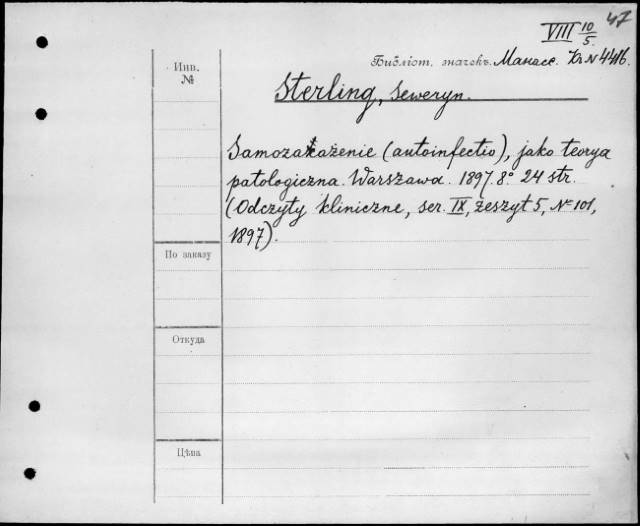 47
VIII 10/5.
Библіот. значекъ. Манасс. Кн N 4416.
Инв. №
Sterling, Seweryn.
Samozakażenie (autoinfectio), jako teorya
patologiczna. Warszawa. 1897. 8° 24 str.
(Odczyty kliniczne, ser. IX, zeszyt 5, № 101,
1897).
По заказу
Откуда
Цѣна